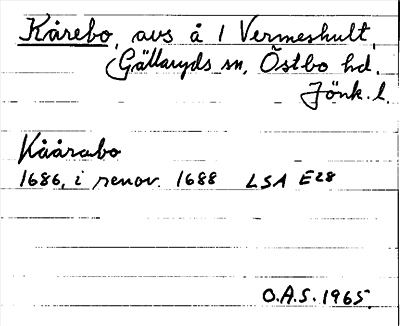 Kårebo, avs å 1 Vermeshult,
Gällaryds sn, Östbo hd.
Jönk. l.
Kåårabo
1686, i renov. 1688 LSA E28
O.A.S. 1965.